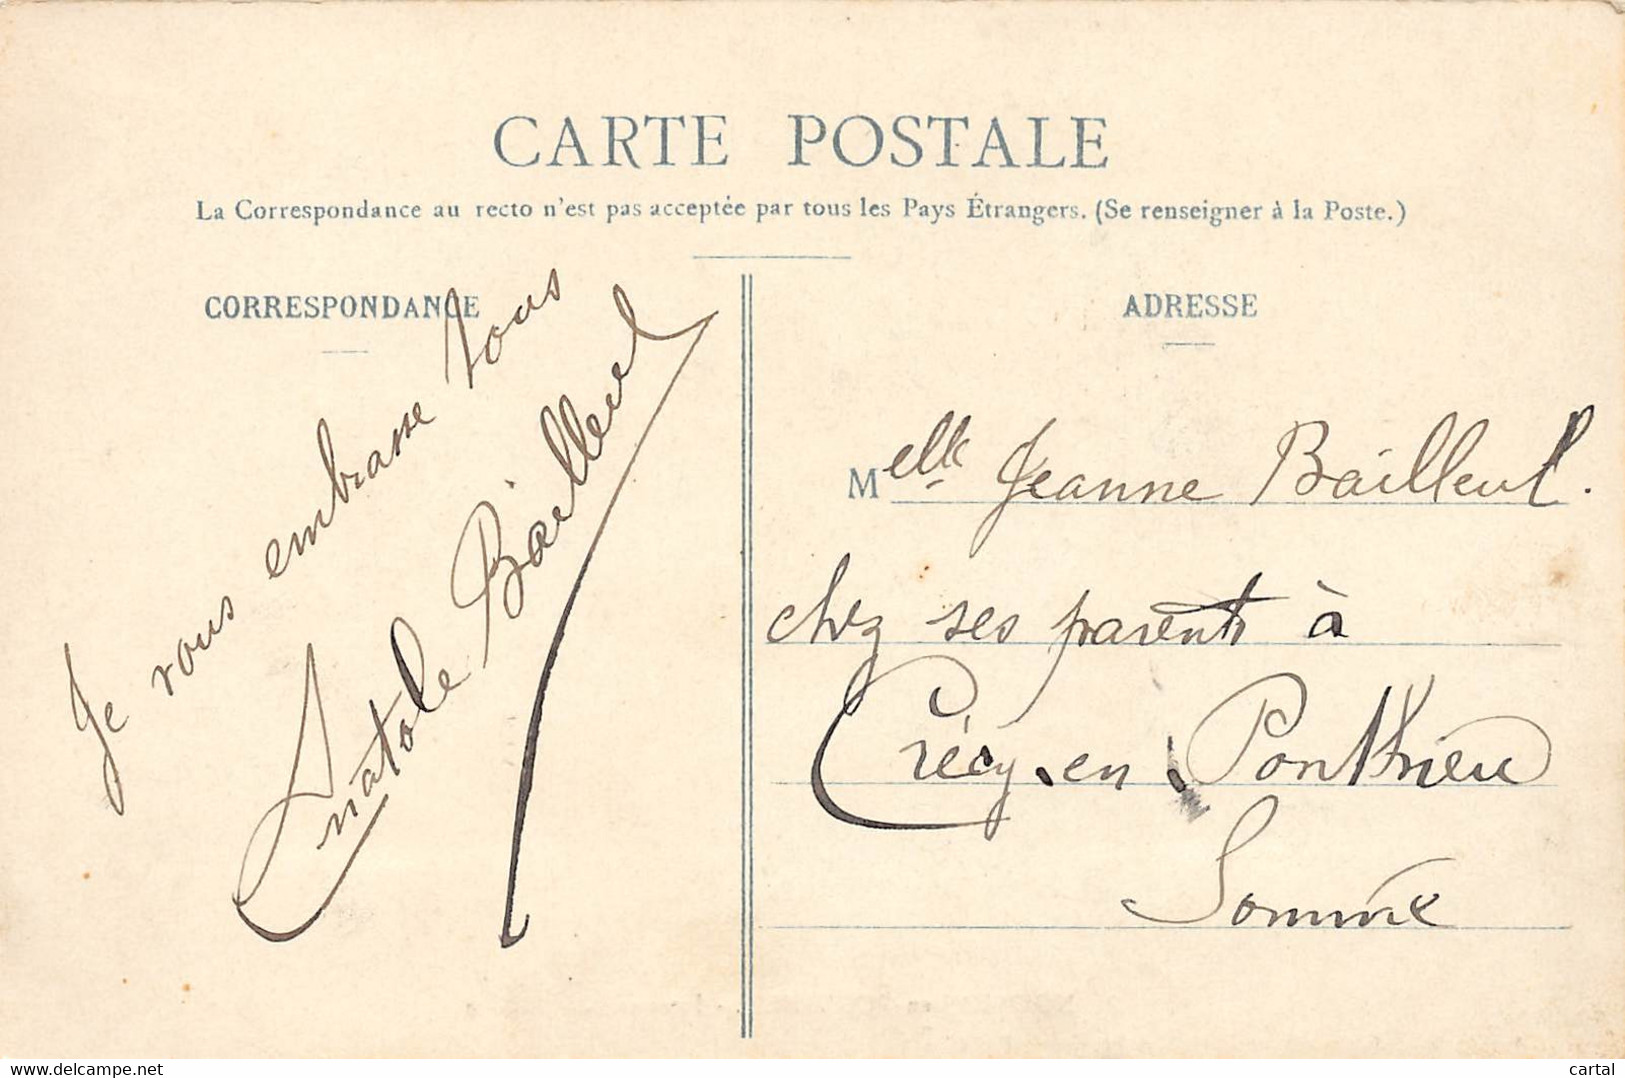 CARTE POSTALE
La Correspondance au recto n'est pas acceptée par tous les Pays Étrangers. (Se renseigner à la Poste.)
CORRESPONDANCE
Je vous embrasse tous
Anatole Bailleul
ADRESSE
Melle Jeanne Bailleul.
chez ses parents à
Crécy-en-Ponthieu
Somme
delcampe.net
cartal